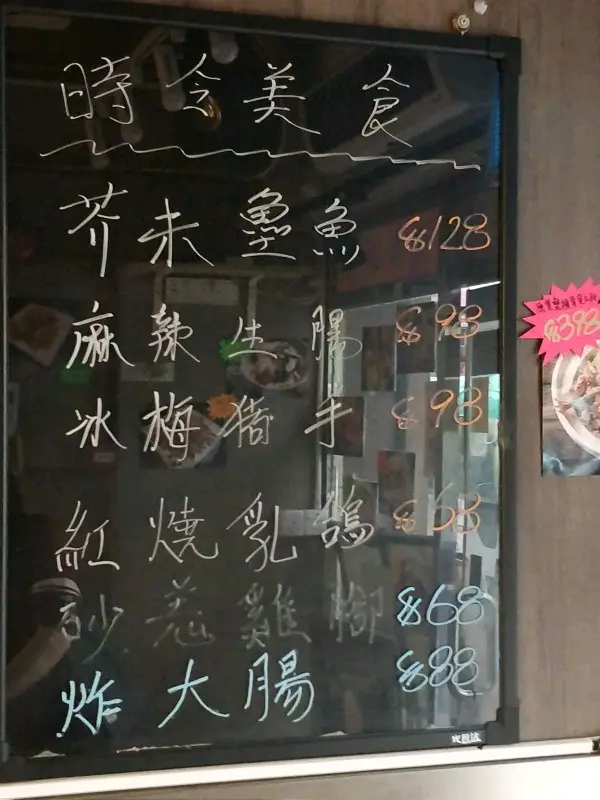 時令美食
芥末墨魚 $128
麻辣生腸 $98
冰梅豬手 $98
紅燒乳鴿 $68
砂羌雞腳 $68
炸大腸 $88
$398